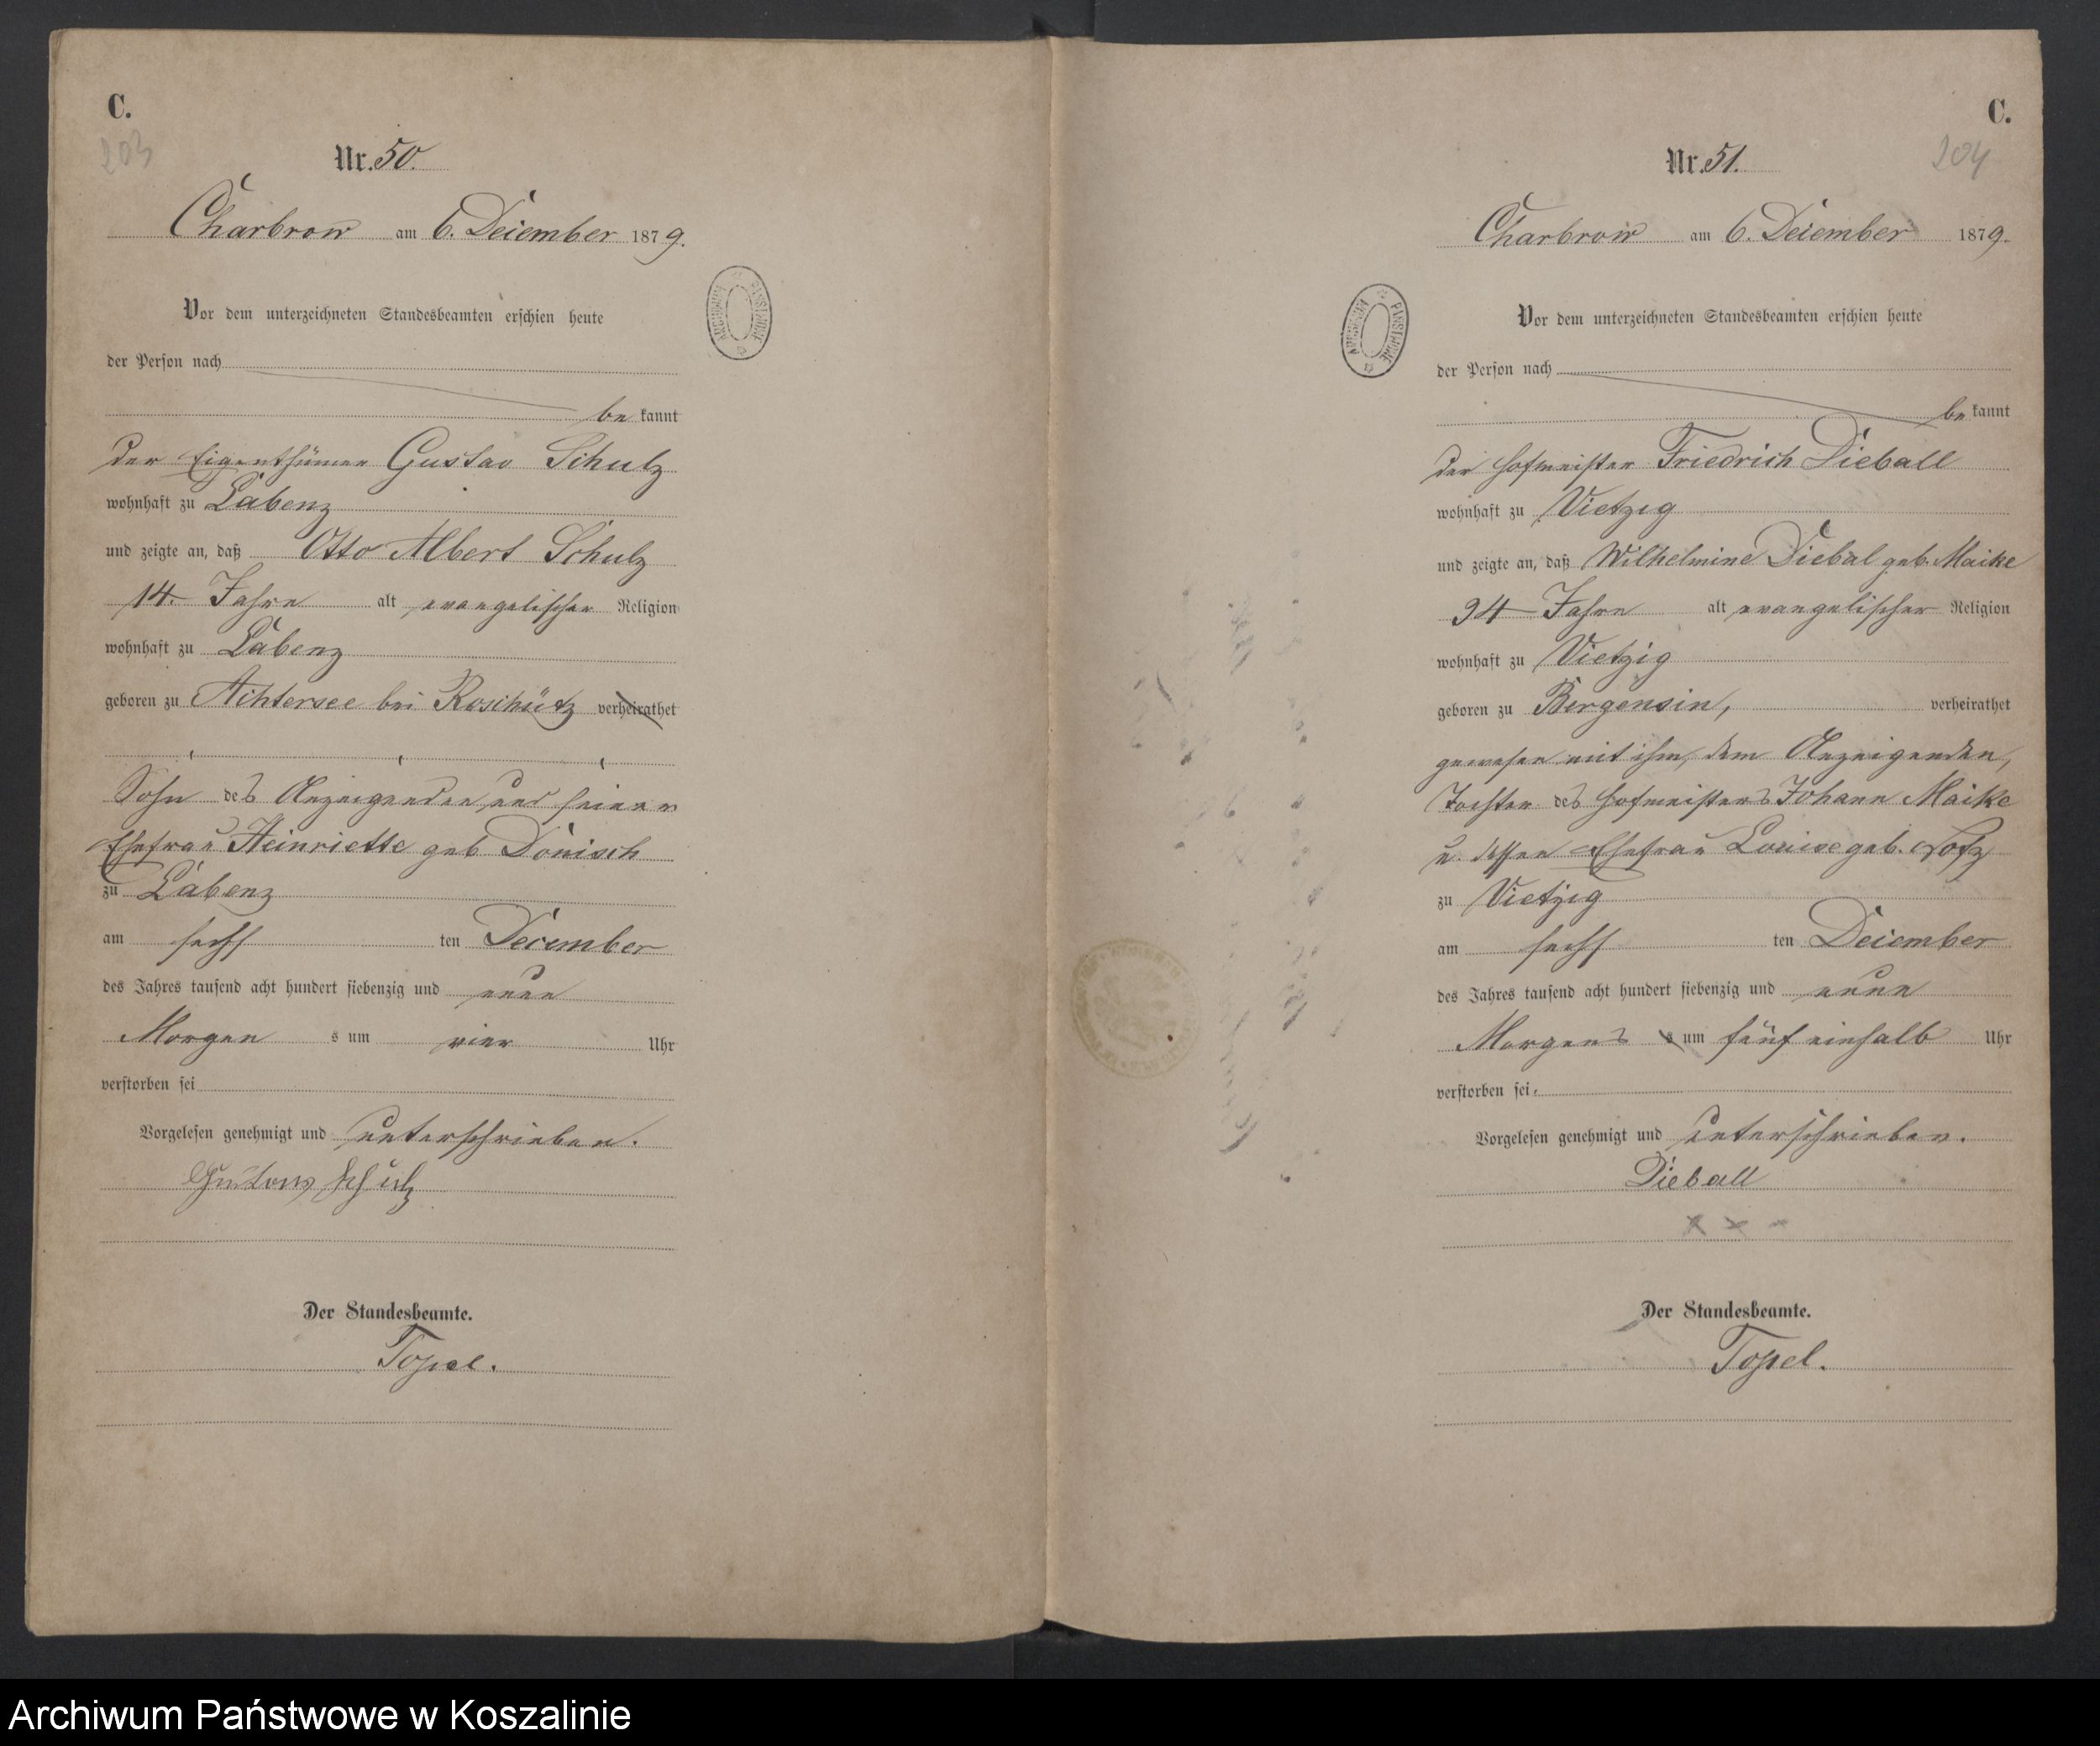 C.
203
Nr. 50.
Charbrow am 6. December 1879.
Vor dem unterzeichneten Standesbeamten erschien heute
der Person nach
be kannt
der Eigenthümer Gustav Schulz
wohnhaft zu Labenz
und zeigte an, daß Otto Albert Schulz
14. Jahre alt evangelischer Religion
wohnhaft zu Labenz
geboren zu Achtersee bei Roschütz verheirathet
Sohn des Anzeigenden und seiner
Ehefrau Heinriette geb Dönisch
zu Labenz
am sechs ten December
des Jahres tausend acht hundert siebenzig und neun
Morgen s um vier Uhr
verstorben sei
Vorgelesen genehmigt und unterschrieben.
Schulz
Der Standesbeamte.
Topel.
ARCHIWUM PAŃSTWOWE
C.
204
Nr. 51.
Charbrow am 6. December 1879.
Vor dem unterzeichneten Standesbeamten erschien heute
der Person nach
be kannt
der Hofmeister Friedrich Dieball
wohnhaft zu Vietzig
und zeigte an, daß Wilhelmine Diebal geb. Maike
34 Jahre alt evangelischer Religion
wohnhaft zu Vietzig
geboren zu Bergensin, verheirathet
gewesen mit ihm, dem Anzeigenden,
Tochter des Hofmeisters Johann Maikke
u. dessen Ehefrau Louise geb.
zu Vietzig
am sechs ten December
des Jahres tausend acht hundert siebenzig und neun
Morgens s um fünf einhalb Uhr
verstorben sei
Vorgelesen genehmigt und unterschrieben.
Dieball
Der Standesbeamte.
Topel.
ARCHIWUM PAŃSTWOWE
Archiwum Państwowe w Koszalinie